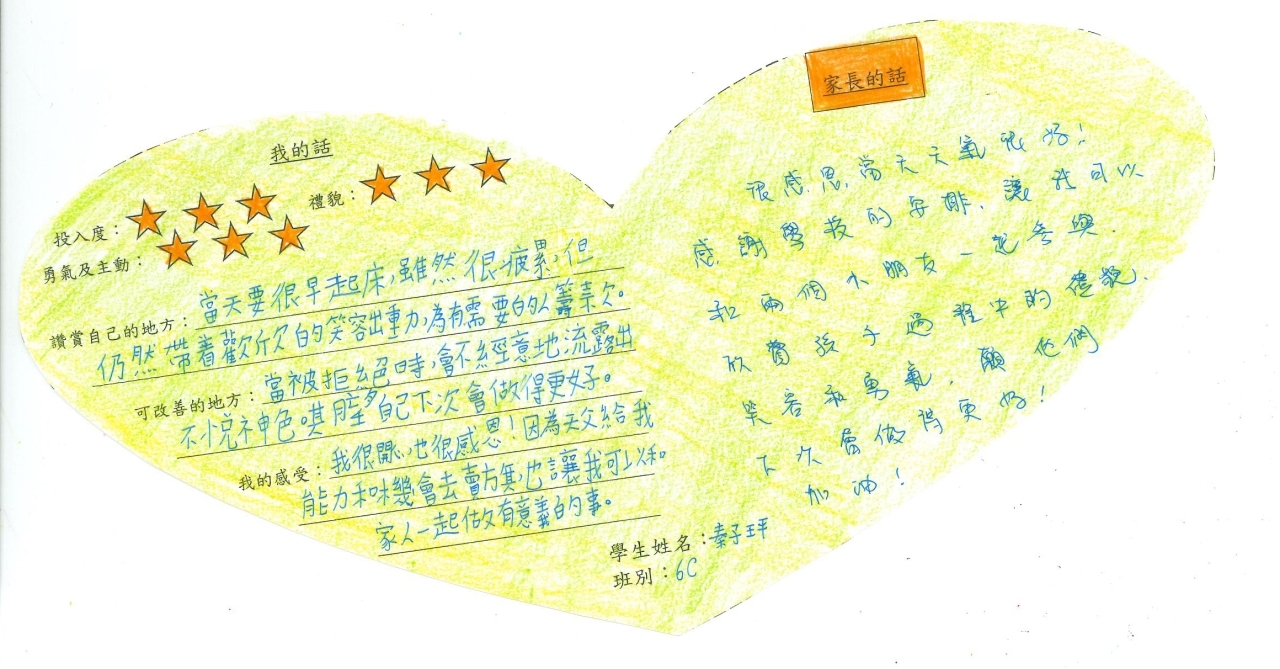 我的話
投入度：
禮貌：
勇氣及主動：
讚賞自己的地方：當天要很早起床,雖然很疲累,但
仍然帶着歡欣的笑容出動,為有需要的人籌款。
可改善的地方：當被拒絕時,會不經意地流露出
不悅神色,期望自己下次會做得更好。
我的感受：我很開心,也很感恩!因為天父給我
能力和機會去賣旗,也讓我可以和
家人一起做有意義的事。
家長的話
很感恩,當天天氣很好!
感謝學校的安排,讓我可以
和兩個小朋友一起參與.
欣賞孩子過程中的禮貌、
笑容和勇氣,願他們
下次會做得更好!
加油!
學生姓名：秦子玶
班別：6C